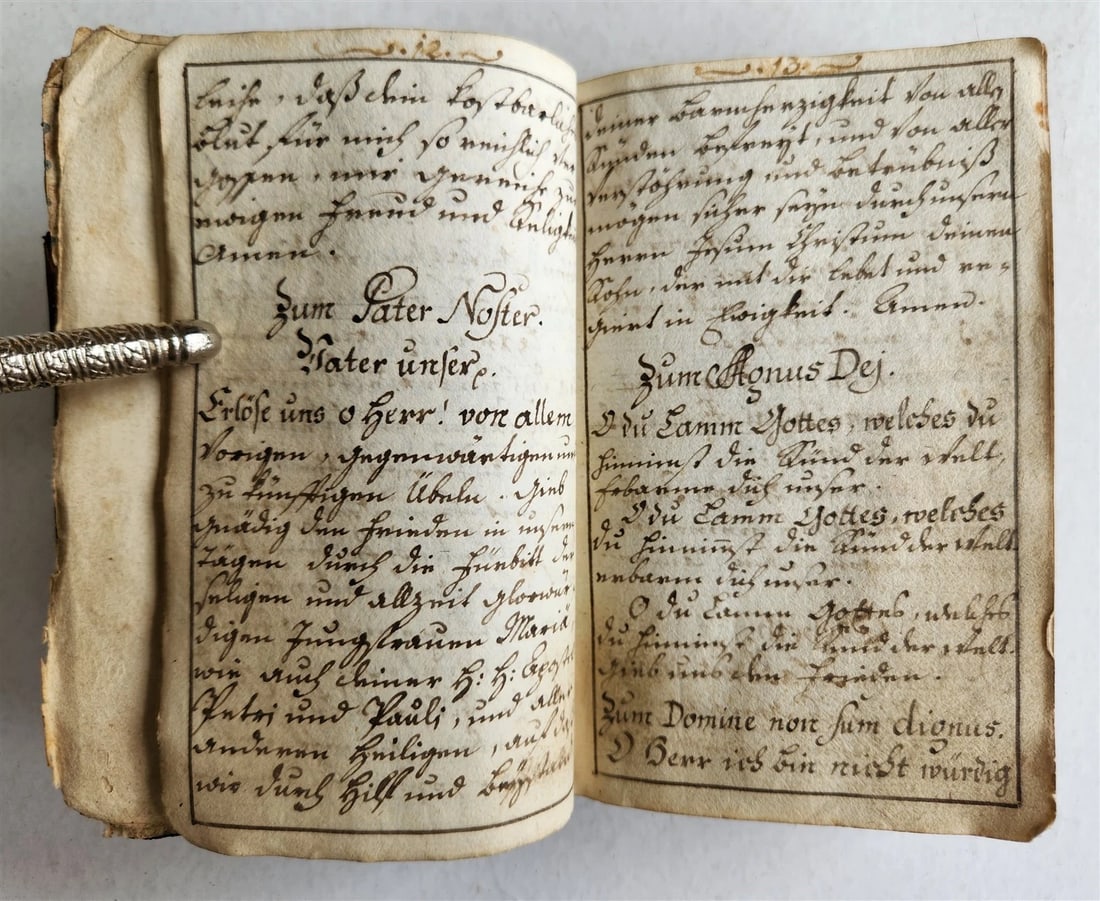 .12.
leihe, daß dein kostbarliches
Blut, für mich so reichlich ver
gossen, mir gereiche zur
ewigen Freud und Seligkeit
Amen.
Zum Pater Noster.
Vater unser.
Erlöse uns o Herr! von allem
Vorigen, gegenwärtigen und
zu künfftigen Übeln. Gieb
gnädig den Frieden in unsern
Tägen durch die Fürbitt der
seligen und allzeit glorwür
digen Jungfrauen Mariä
wie auch deiner H: H: Apostl
Petri und Pauli, und aller
anderen Heiligen, auf daß
wir durch Hilf und
.13.
deiner Barmherzigkeit von allen
Sünden befreyt, und von aller
Verstöhrung und betrübniß
mögen sicher seyn durch unsern
Herrn Jesum Christum deinen
Sohn, der mit dir lebet und re=
giert in Ewigkeit. Amen.
Zum Agnus Dej.
O du Lamm Gottes, welches du
hinnimst die Sünd der Welt,
Erbarme dich unser.
O du Lamm Gottes, welches
du hinnimst die Sünd der Welt
erbarm dich unser.
O du Lamm Gottes, welches
du hinnimst die Sünd der Welt.
Gieb uns den Frieden.
Zum Domine non sum dignus.
O Herr ich bin nicht würdig